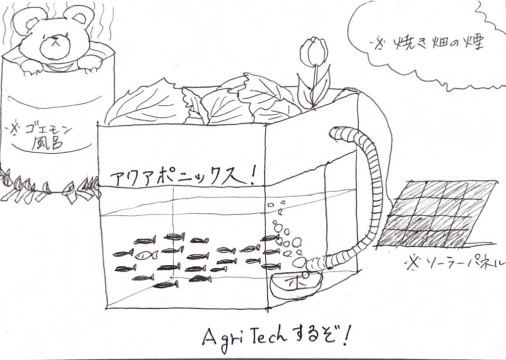 ※ 焼き畑の煙
※ ゴエモン
風呂
アクアポニックス!
※ ソーラーパネル
AgriTechするぞ!